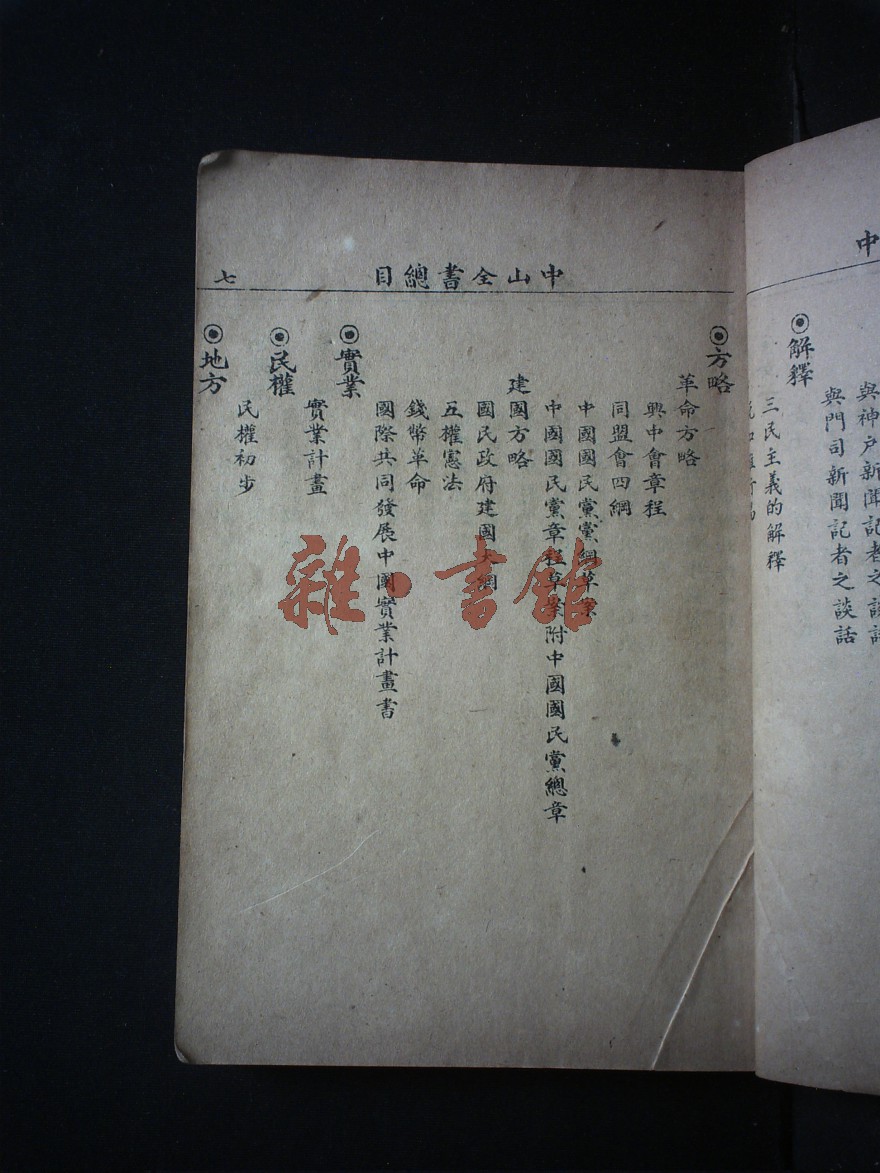 中
◉解釋
與神戶新聞記者之談話
與門司新聞記者之談話
三民主義的解釋
中山全書總目
七
◉方略
革命方略
興中會章程
同盟會四綱
中國國民黨黨綱草案
中國國民黨章程草案附中國國民黨總章
建國方略
國民政府建國大綱
五權憲法
錢幣革命
國際共同發展中國實業計畫書
◉實業
實業計畫
◉民權
民權初步
◉地方
雜·書館